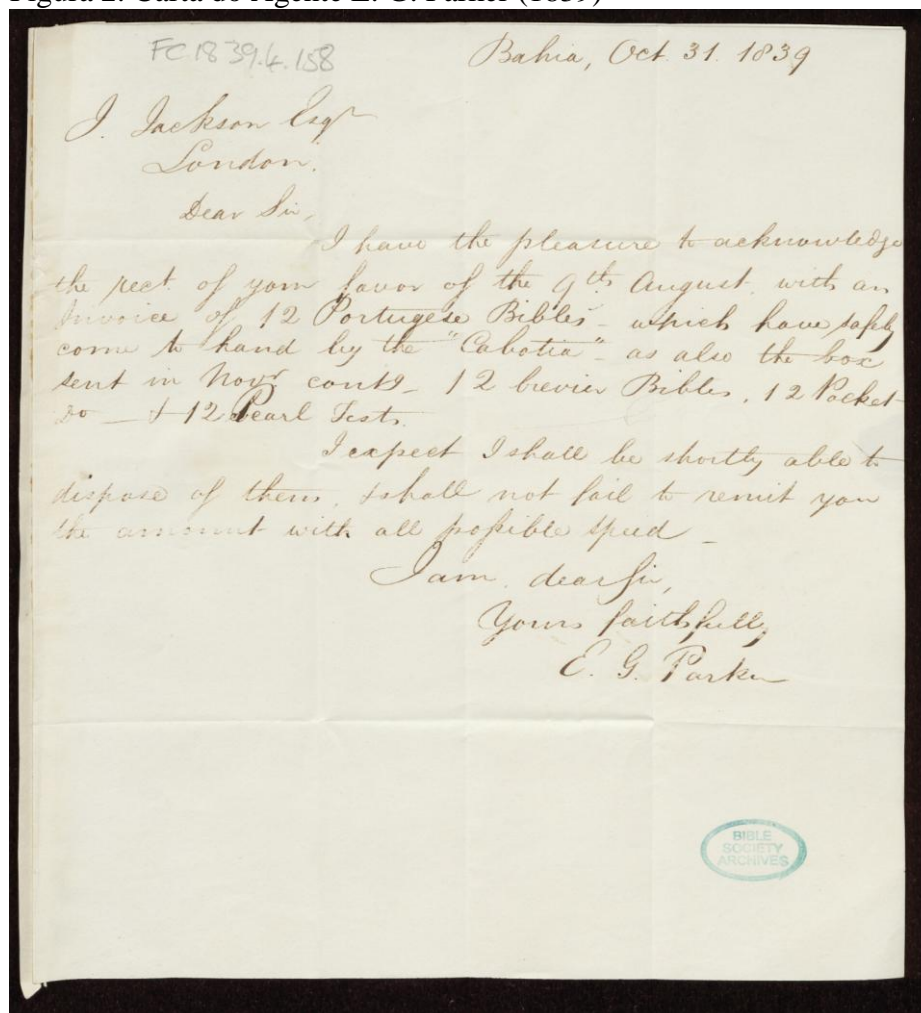 Figura 2: Carta do Agente E. G. Parker (1839)
FC.1839.4.158
Bahia, Oct. 31. 1839
J. Jackson Esqr
London.
Dear Sir,
I have the pleasure to acknowledge
the rect. of your favor of the 9th August, with an
Invoice of 12 Portugese Bibles - which have safely
come to hand by the "Cabotia" - as also the box
sent in Novr contg - 12 brevier Bibles, 12 Pocket
Do - & 12 Pearl Tests.
I expect I shall be shortly able to
dispose of them, & shall not fail to remit you
the amount with all possible speed -
I am, dear Sir,
Yours faithfully,
E. G. Parker
BIBLE
SOCIETY
ARCHIVES